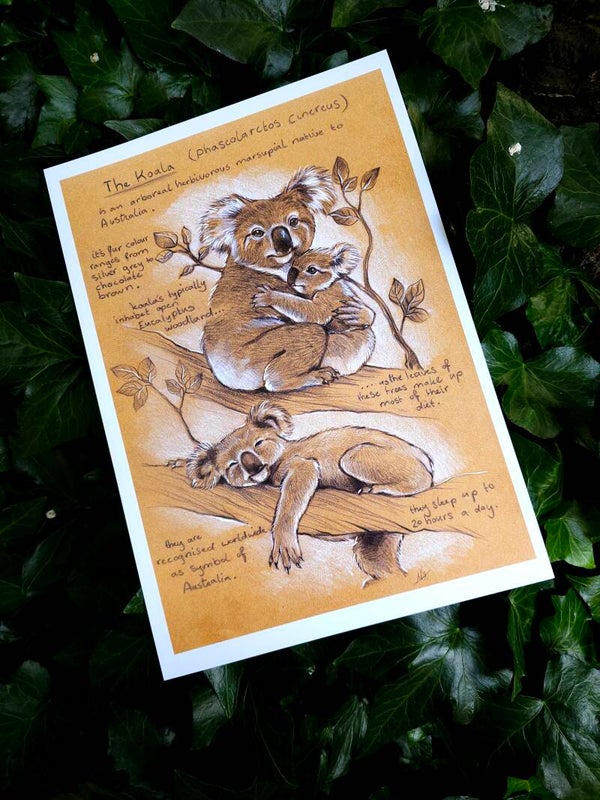 The Koala (phascolarctos cinereus)
is an arboreal herbivorous marsupial native to
Australia.
it's fur colour
ranges from
silver grey to
chocolate
brown.
koala's typically
inhabet open
Eucalyptus
woodland...
....as the leaves of
these trees make up
most of their
diet.
they sleep up to
20 hours a day.
they are
recognised worldwide
as symbol of
Australia.